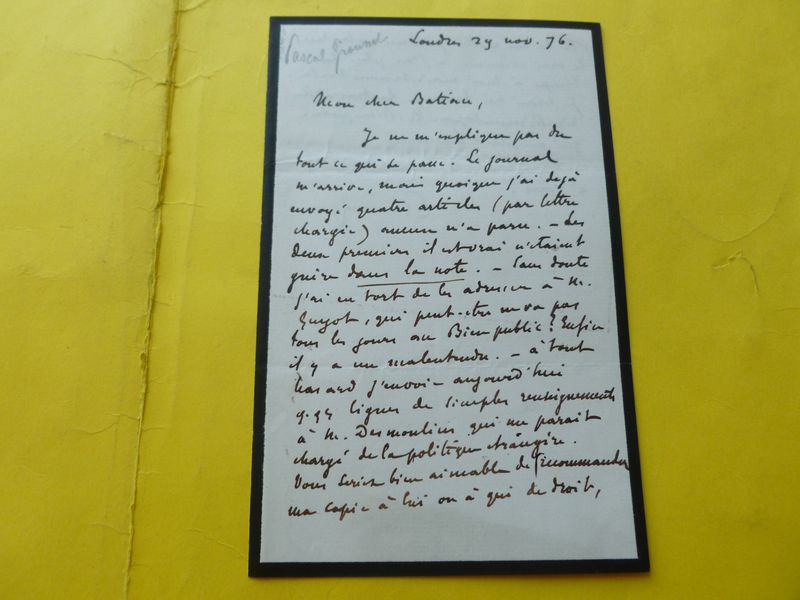 Pascal Grousset
Londres 29 nov. 76.
Mon cher Batiau,
Je ne m'explique pas du
tout ce qui se passe. Le journal
m'arrive, mais quoique j'ai dejà
envoyé quatre articles (par lettre
chargée) aucun n'a paru. – Les
deux premiers il est vrai n'etaient
guère dans la note. – Sans doute
j'ai eu tort de les adresser à M.
Guyot, qui peut-être ne va pas
tous les jours au Bien public? Enfin
il y a un malentendu. – à tout
hasard j'envoie aujourd'hui
q.qs lignes de simples renseignements
à M. Desmoulins qui me parait
chargé de la politique étrangère.
Vous seriez bien aimable de recommander
ma copie à lui ou à qui de droit,